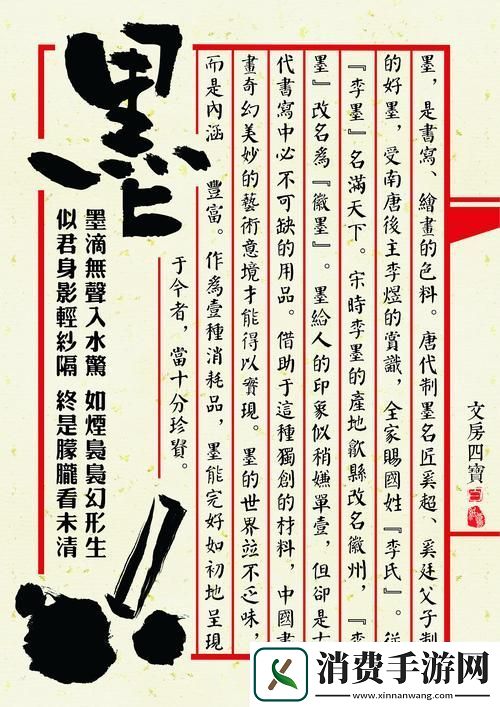 墨
墨，是書寫、繪畫的色料。唐代制墨名匠奚超、奚廷父子制
的好墨，受南唐後主李煜的賞識，全家賜國姓『李氏』。從
『李墨』名滿天下。宋時李墨的產地歙縣改名徽州，『李
墨』改名為『徽墨』。墨給人的印象似稍嫌單壹，但卻是古
代書寫中必不可缺的用品。借助于這種獨創的材料，中國書
畫奇幻美妙的藝術意境才能得以實現。墨的世界並不乏味，
而是內涵豐富。作為壹種消耗品，墨能完好如初地呈現
于今者，當十分珍貴。
墨滴無聲入水驚 如煙裊裊幻形生
似君身影輕紗隔 終是朦朧看未清
文房四寶
消费手游网
www.xinnanwang.com